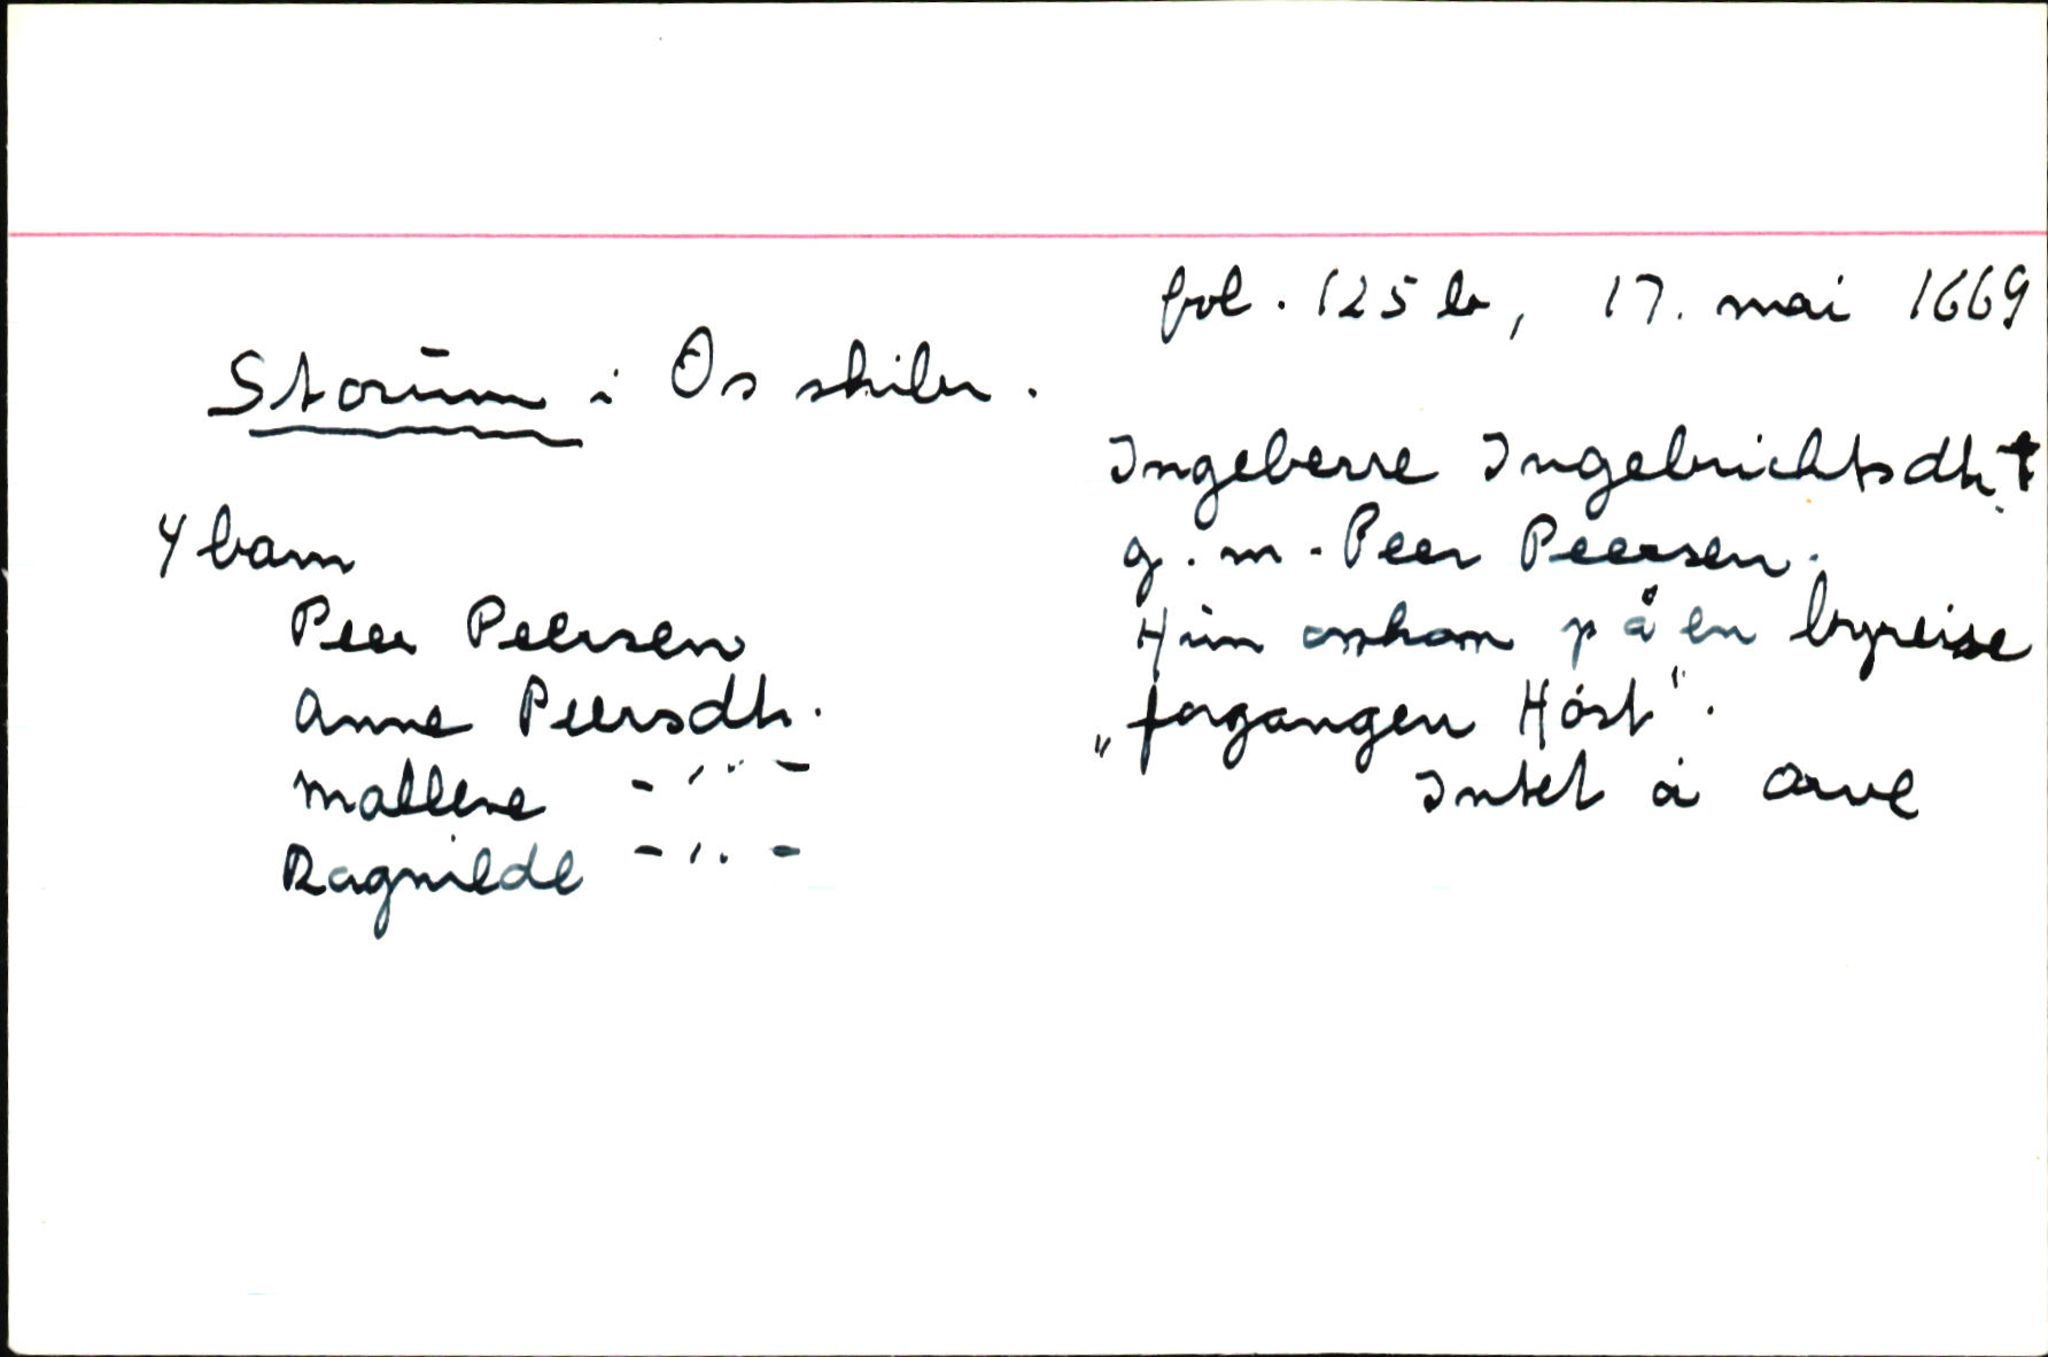 fol. 125 b, 17. mai 1669
Storum i Os skibr.
Ingeberre Ingebrichtsdtr. †
g.m. Peer Peersen.
4 barn
Peer Peersen
Hun omkom på en byreise
Anne Peersdtr.
„forgangen Høst".
Mallene -"-
Intet å arve
Ragnilde -"-